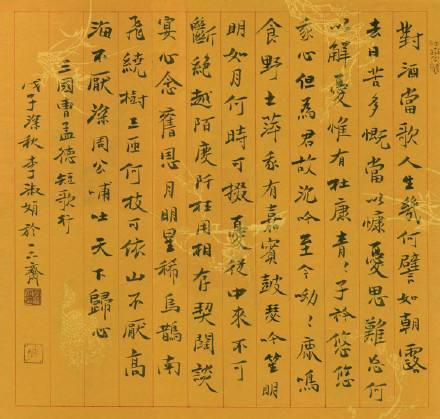 對酒當歌人生幾何譬如朝露
去日苦多慨當以慷憂思難忘何
以解憂惟有杜康青〻子衿悠悠
我心但為君故沉吟至今呦〻鹿鳴
食野之苹我有嘉賓鼓瑟吹笙明
明如月何時可掇憂從中來不可
斷絕越陌度阡枉用相存契闊談
宴心念舊恩月明星稀烏鵲南
飛繞樹三匝何枝可依山不厭高
海不厭深周公哺吐天下歸心
三國曹孟德短歌行
戊子深秋李淑娟於齋